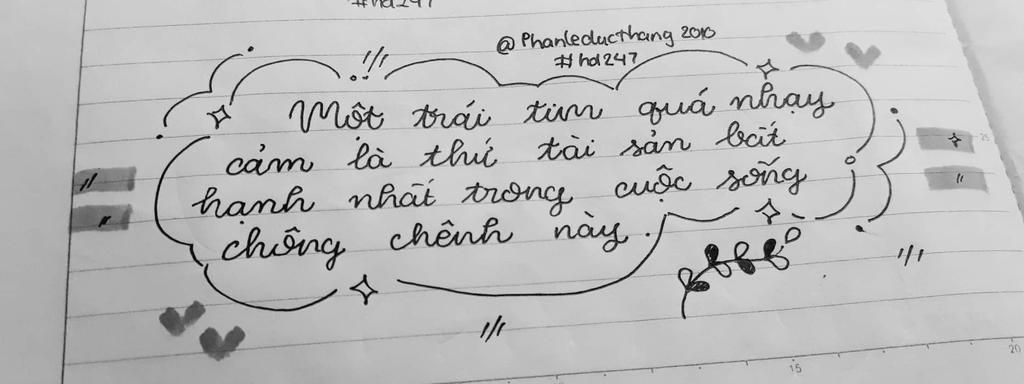 #hd247
@Phanleducthang 2010
#hd247
Một trái tim quá nhạy
cảm là thứ tài sản bất
hạnh nhất trong cuộc sống
chông chênh này.
25
15
20